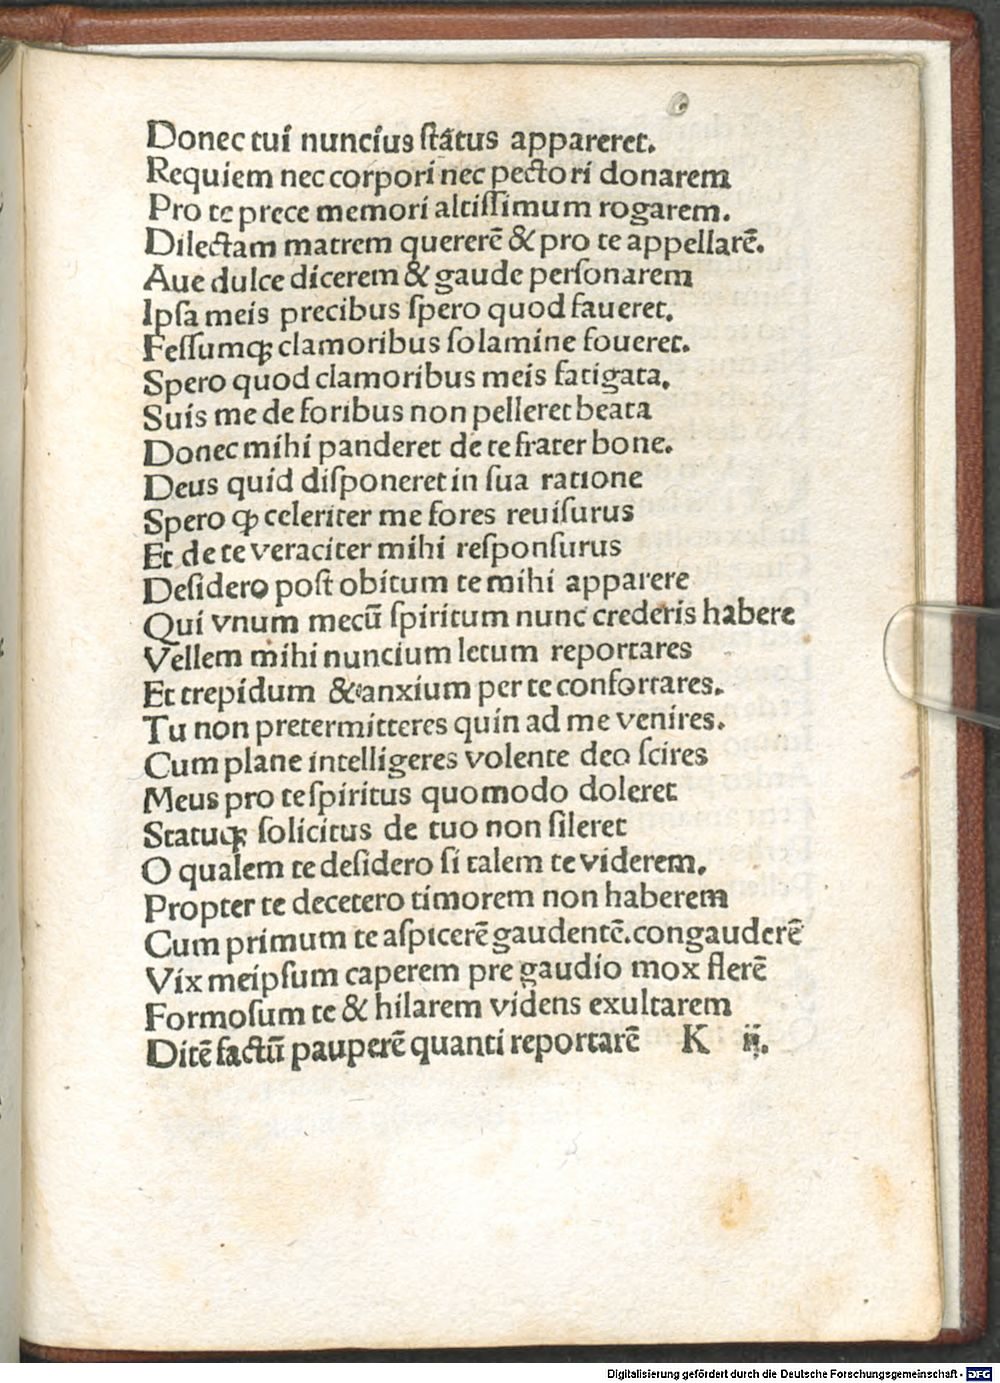 Donec tui nuncius ſtatus appareret.
Requiem nec corpori nec pectori donarem
Pro te prece memori altiſſimum rogarem.
Dilectam matrem quererē & pro te appellarē.
Aue dulce dicerem & gaude perſonarem
Ipſa meis precibus ſpero quod faueret.
Feſſumqꝫ clamoribus ſolamine foueret.
Spero quod clamoribus meis fatigata.
Suis me de foribus non pelleret beata
Donec mihi panderet de te frater bone.
Deus quid diſponeret in ſua ratione
Spero ꝙ celeriter me fores reuiſurus
Et de te veraciter mihi reſponſurus
Deſidero poſt obitum te mihi apparere
Qui vnum mecū ſpiritum nunc crederis habere
Vellem mihi nuncium letum reportares
Et trepidum & anxium per te confortares.
Tu non pretermitteres quin ad me venires.
Cum plane intelligeres volente deo ſcires
Meus pro te ſpiritus quomodo doleret
Statuqꝫ ſolicitus de tuo non ſileret
O qualem te deſidero ſi talem te viderem.
Propter te decetero timorem non haberem
Cum primum te aſpicerē gaudentē.congauderē
Vix meipſum caperem pre gaudio mox flerē
Formoſum te & hilarem videns exultarem
Ditē factū pauperē quanti reportarē K ii.
Digitalisierung gefördert durch die Deutsche Forschungsgemeinschaft - DFG